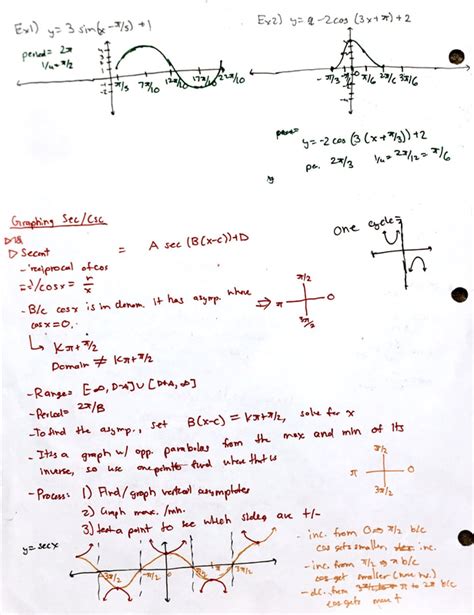 Ex1) y = 3 sin(x - π/3) + 1
period = 2π
1/4 = π/2
π/3
Ex2) y = -2cos (3x + π) + 2
-π/3
-π/6
0
π/6
y = -2cos (3(x + π/3)) + 2
per. 2π/3 1/4 = 2π/12 = π/6
Graphing Sec/Csc
One cycle =
Secant = A sec (B(x-c)) + D
- reciprocal of cos
= 1/cosx = r/x
- B/c cosx is in denom. it has asymp. where
cosx = 0.
π/2
π
0
3π/2
↳ Kπ + π/2
Domain ≠ Kπ + π/2
- Range = [-∞, D-A] ∪ [D+A, ∞]
- Period = 2π/B
- To find the asymp., set B(x-c) = Kπ + π/2, solve for x
- It's a graph w/ opp. parabolas from the max and min of its
inverse, so use one point to find where that is
π/2
π
0
3π/2
- Process: 1) Find/graph vertical asymptotes
2) Graph max./min.
3) test a point to see which sides are +/-
y = sec x
-3π/2
-π/2
π/2
3π/2
- inc. from 0 → π/2 b/c
cos gets smaller, inc.
- inc. from π/2 → π b/c
cos get smaller
- dc. from π to 2π b/c
cos gets more +